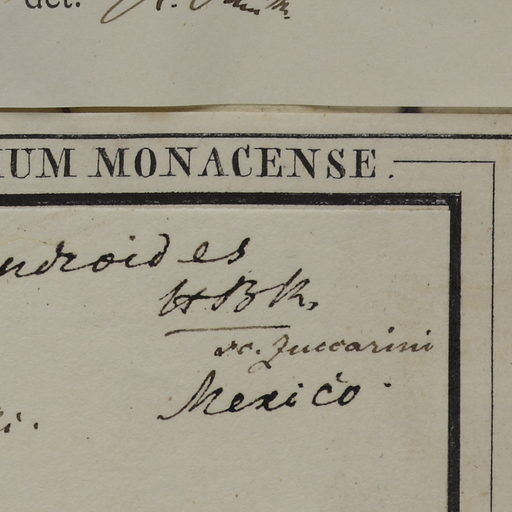 det.
IUM MONACENSE.
ndroides
HBK.
sc. Zuccarini
Mexico.
i.